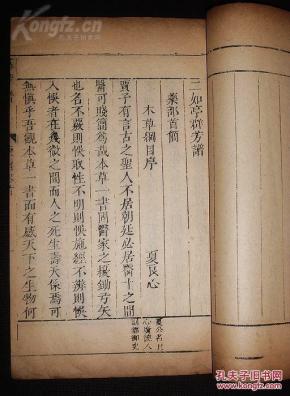 二如亭群芳譜
藥部首簡
本草綱目序
夏良心
賈子有言古之聖人不居朝廷必居醫卜之間
醫可賤簡為哉本草一書固醫家之耰鋤弓矢
也名不覈則悞取性不明則悞施經不辨則悞
入悞者在幾微之間而人之死生壽夭係焉可
無慎乎吾觀本草一書而有感天下之生物何
孔夫子旧书网
www.kongfz.com